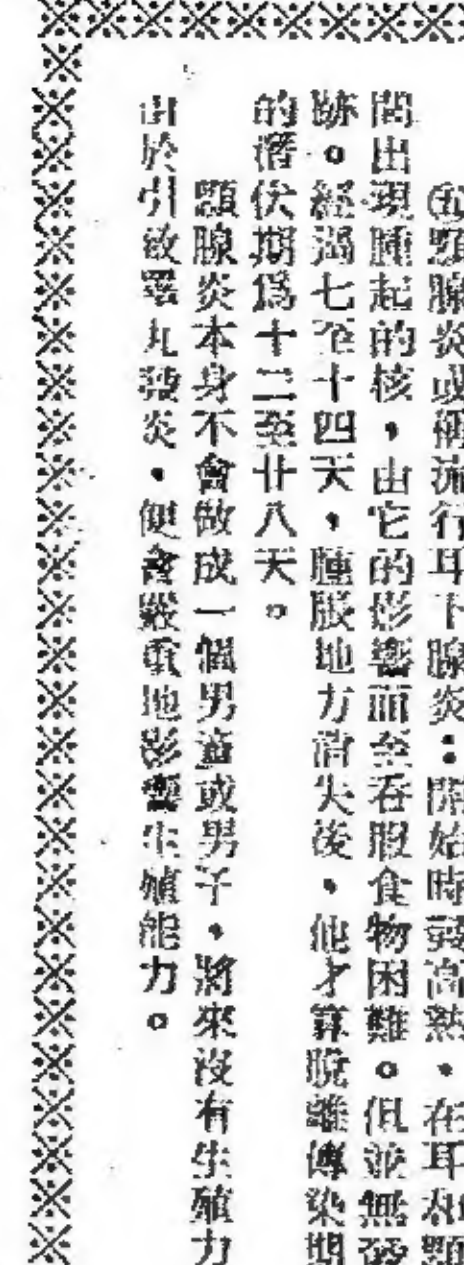 ㈤顋腺炎或稱流行耳下腺炎：開始時發高熱，在耳和顋
間出現腫起的核，由它的影響而至吞服食物困難。但並無發
跡。經過七至十四天，腫脹地方消失後，他才算脫離傳染期
的潛伏期爲十二至廿八天。
顋腺炎本身不會做成一個男童或男子，將來沒有生殖力
由於引致睪丸發炎，便會嚴重地影響生殖能力。